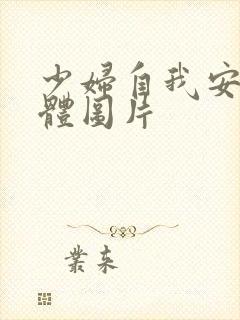 少婦自我安
體圖片
叢来